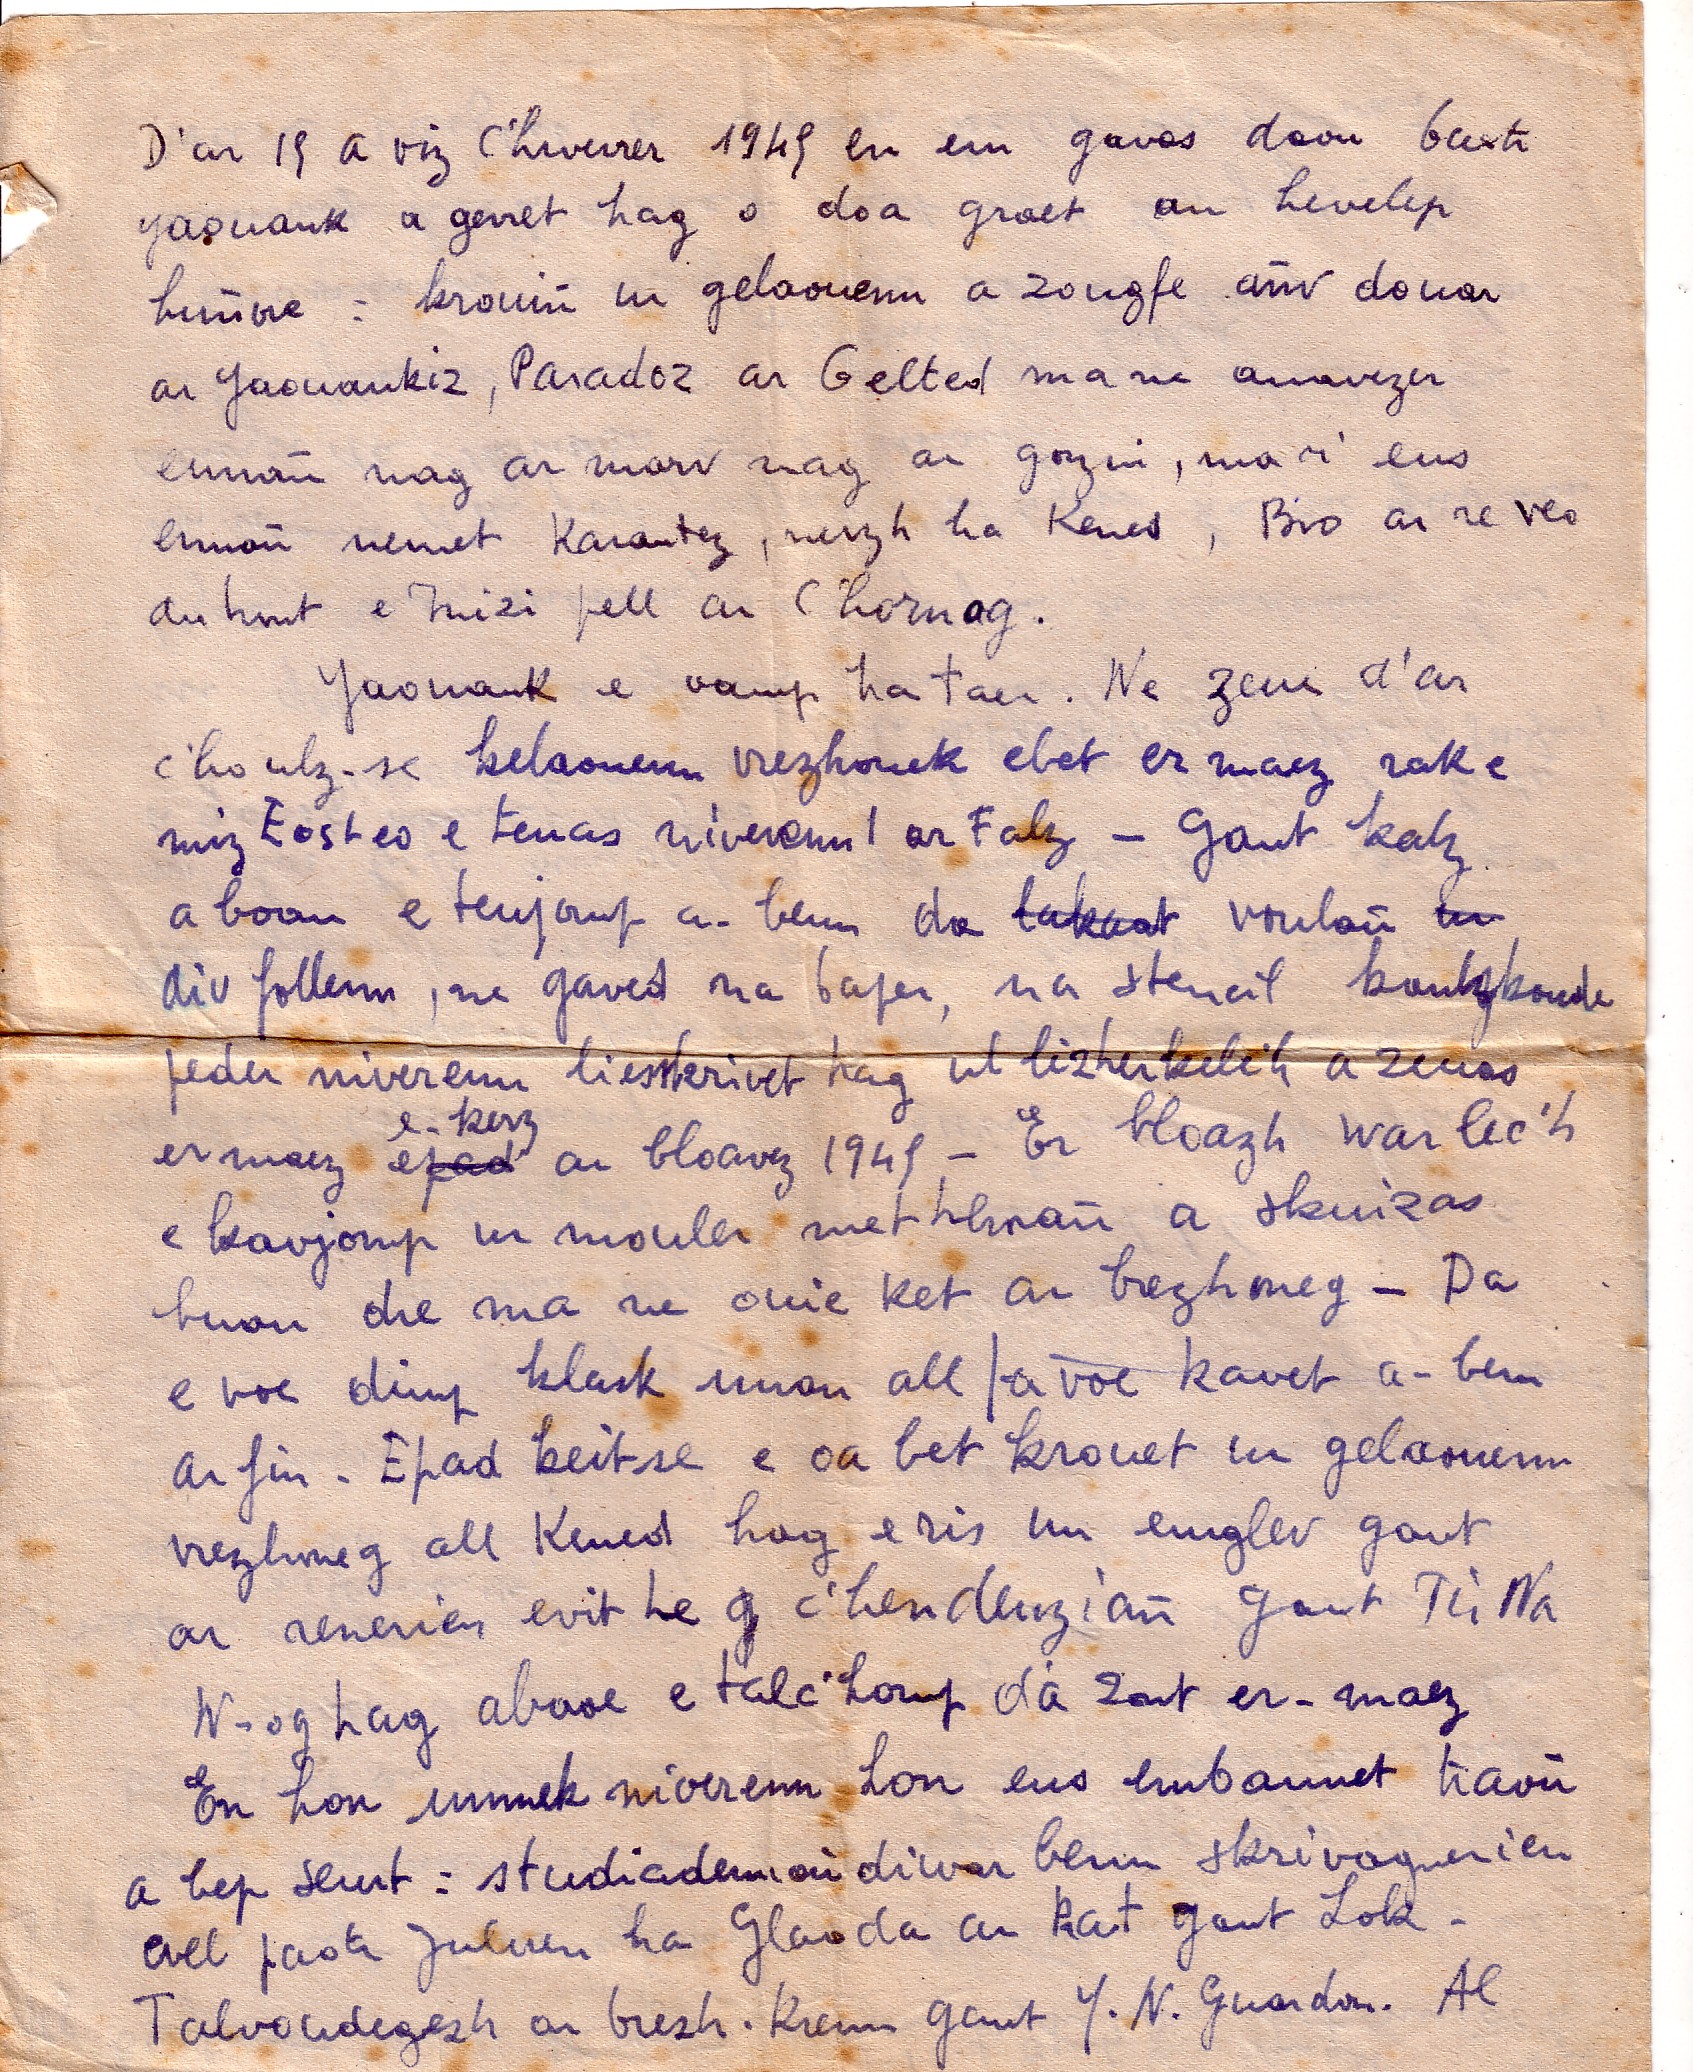 D'ar 19 a viz C'hwevrer 1949 en em gavas daou baotr
yaouank a gevret hag o doa graet an hevelep
huñvre : krouiñ ur gelaouenn a zougfe añv douar
ar Yaouankiz, Paradoz ar Gelted ma ne anavezer
ennañ nag ar marv nag ar gozni, ma n'eus
ennañ nemet Karantez, nerzh ha Kened, Bro ar re veo
du hont e Inizi pell ar C'hornog.
Yaouank e oamp ha taer. Ne zeue d'ar
c'houlz-se kelaouenn vrezhonek ebet er maez rak e
miz Eost eo e teuas niverenn 1 ar Falz – Gant kalz
a boan e teujomp a-benn da lakaat voulañ un
div follenn, ne gaved na baper, na stencil koulskoude
peder niverenn liesskrivet hag ul lizherkelc'h a zeuas
er maez epad e-kerz ar bloavez 1949 – Er bloazh war lec'h
e kavjomp ur mouler met hemañ a skuizas
buan dre ma ne ouie ket ar brezhoneg – Da
e voe dimp klask unan all / a voe kavet a-benn
ar fin. Epad keit-se e oa bet krouet ur gelaouenn
vrezhoneg all Kened hag e ris un emglev gant
ar renerien evit he c'hendeuziañ gant Tir Na
N-og hag abaoe e talc'homp da zont er-maez
En hon unnek niverenn hon eus embannet traoù
a bep seurt : studiadennoù diwar benn skrivagnerien
evel paotr Juluen ha Glaoda ar Prat gant Lok-
Talvoudegezh ar brezh. krenn gant Y. N. Guardon. Al